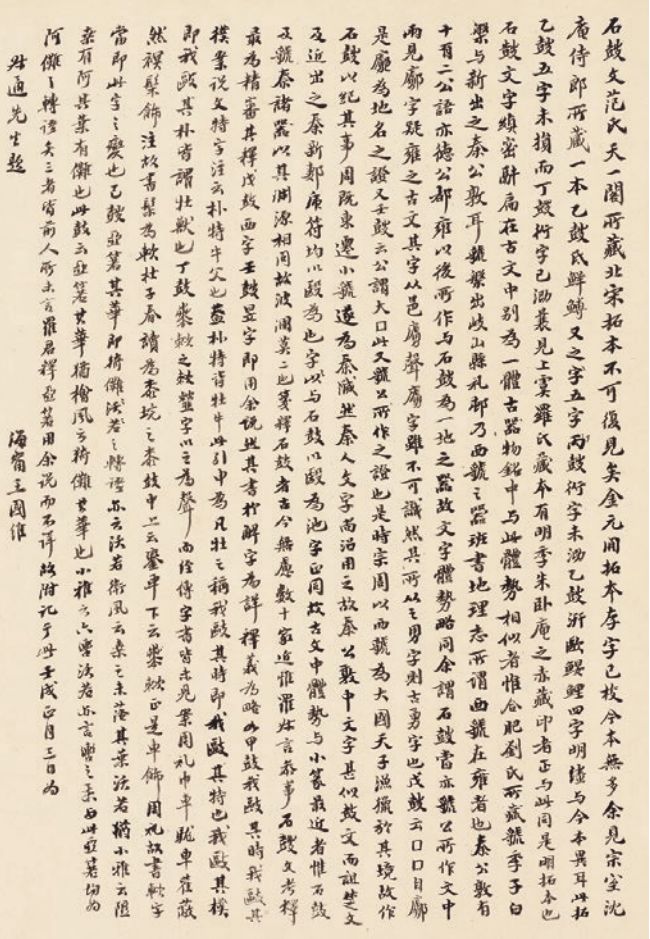 石鼓文范氏天一閣所藏北宋拓本不可復見矣金元間拓本存字已校今本無多余見宗室沈
庵侍郎所藏一本乙鼓氐鮮鱄又之字五字丙鼓衍字未泐乙鼓洐歐鰋鯉四字明㯱與今本異耳此拓
乙鼓五字未損而丁鼓衍字已泐曩見上虞羅氏藏本有明季朱臥庵之赤藏印者正与此同是明拓本也
石鼓文字縝密駢扁在古文中別為一體古器物銘中与此體勢相似者惟合肥劉氏所藏虢季子白
槃与新出之秦公敦耳虢槃出岐山縣礼邨乃西虢之器班書地理志所謂西虢在雍者也秦公敦有
十有二公語亦德公都雍以後所作与石鼓為一地之器故文字體勢略同余謂石鼓當亦虢公所作文中
兩見廓字疑雍之古文其字从邑膚聲膚字雖不可識然其所以之男字則古勇字也戊鼓云口口自廓
是廓為地名之證又壬鼓云公謂大口此又虢公所作之證也是時宗周以西虢為大國天子漁獵於其境故作
石鼓以紀其事周既東遷小虢遂為秦滅然秦人文字尚沿用之故秦公敦中文字甚似鼓文而詛楚文
及近出之秦新郪虎符均以殹為也字以与石鼓以殹為池字正同故古文中體勢与小篆最近者惟石鼓
及虢秦諸器以其淵源相同故波瀾莫二也箋釋石鼓者古今無慮數十家近惟羅叔言參事石鼓文考釋
最為精審其釋戊鼓西字壬鼓昱字即用余說然其書於解字為詳釋義為略如甲鼓我歐其時我歐其
樸案說文特字注云朴特牛父也蓋朴特皆牡牛此引申為凡牡之稱我歐其時即我歐其特也我歐其樸
即我歐其朴皆謂牡獸也丁鼓㯃㰞之㰞䪢字以之為聲而經傳字書皆未見案周礼巾車駹車雚蔽
然𧜀髹飾注故書髹為軟杜子春讀為桼垸之桼鼓中上云鋚車下云㯃㰞正是車飾周礼故書軟字
當即此字之變也乙鼓亞箬其華即猗儺沃若之轉語亦云沃若衛風云桑之未落其葉沃若猶小雅云隰
桑有阿其葉有儺也此鼓云亞箬其華猶檜風云猗儺其華也小雅云六轡沃若亦言轡之柔与此亞箬均為
阿儺之轉語矣三者皆前人所未言羅君釋亞箬用余說而不詳故附記于此壬戌正月三日為
叔通先生題
海甯王國維